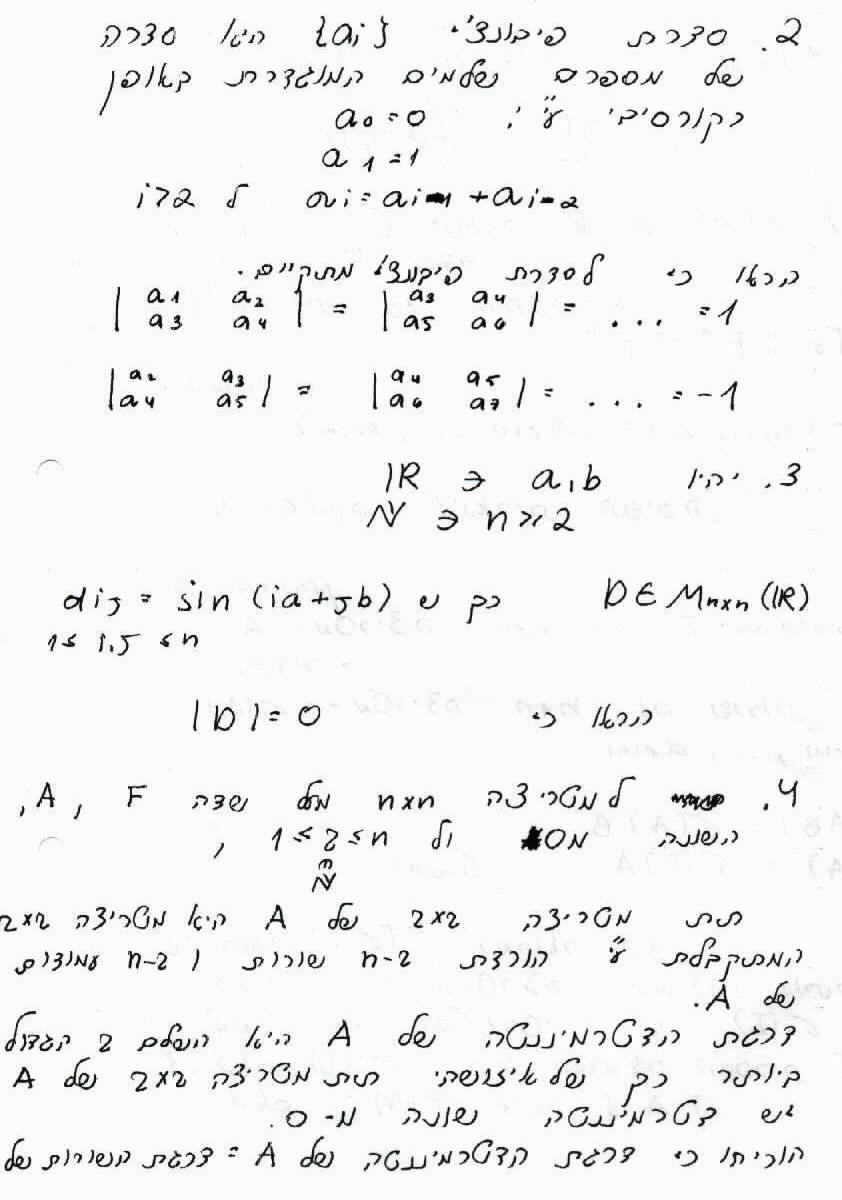 2. סדרת פיבונצ'י {ai} היא סדרה
של מספרים שלמים המוגדרת באופן
רקורסיבי ע"י:   a0 = 0
a1 = 1
ai = ai-1 + ai-2   ל   2<i
הראו כי לסדרת פיבונצ'י מתקיים.
| a1 a2 | = | a3 a4 | = ... = 1
| a3 a4 |   | a5 a6 |
| a2 a3 | = | a4 a5 | = ... = -1
| a4 a5 |   | a6 a7 |
3. יהיו   a,b ∈ IR
2≤n ∈ N
D ∈ Mnxn (IR)   כך ש   dij = sin (ia+jb)
1≤ i,j ≤n
הראו כי   |D| = 0
4. למטריצה nxn מעל שדה F, A,
השונה מ 0 ול 1≤r≤n,
N
תת מטריצה rxr של A היא מטריצה rxr
המתקבלת ע"י הורדת n-r שורות ו n-r עמודות
של A.
דרגת הדטרמיננטה של A היא השלם r הגדול
ביותר כך של איזושהי תת מטריצה rxr של A
יש דטרמיננטה שונה מ-0.
הוכיחו כי דרגת הדטרמיננטה של A = דרגת השורות של